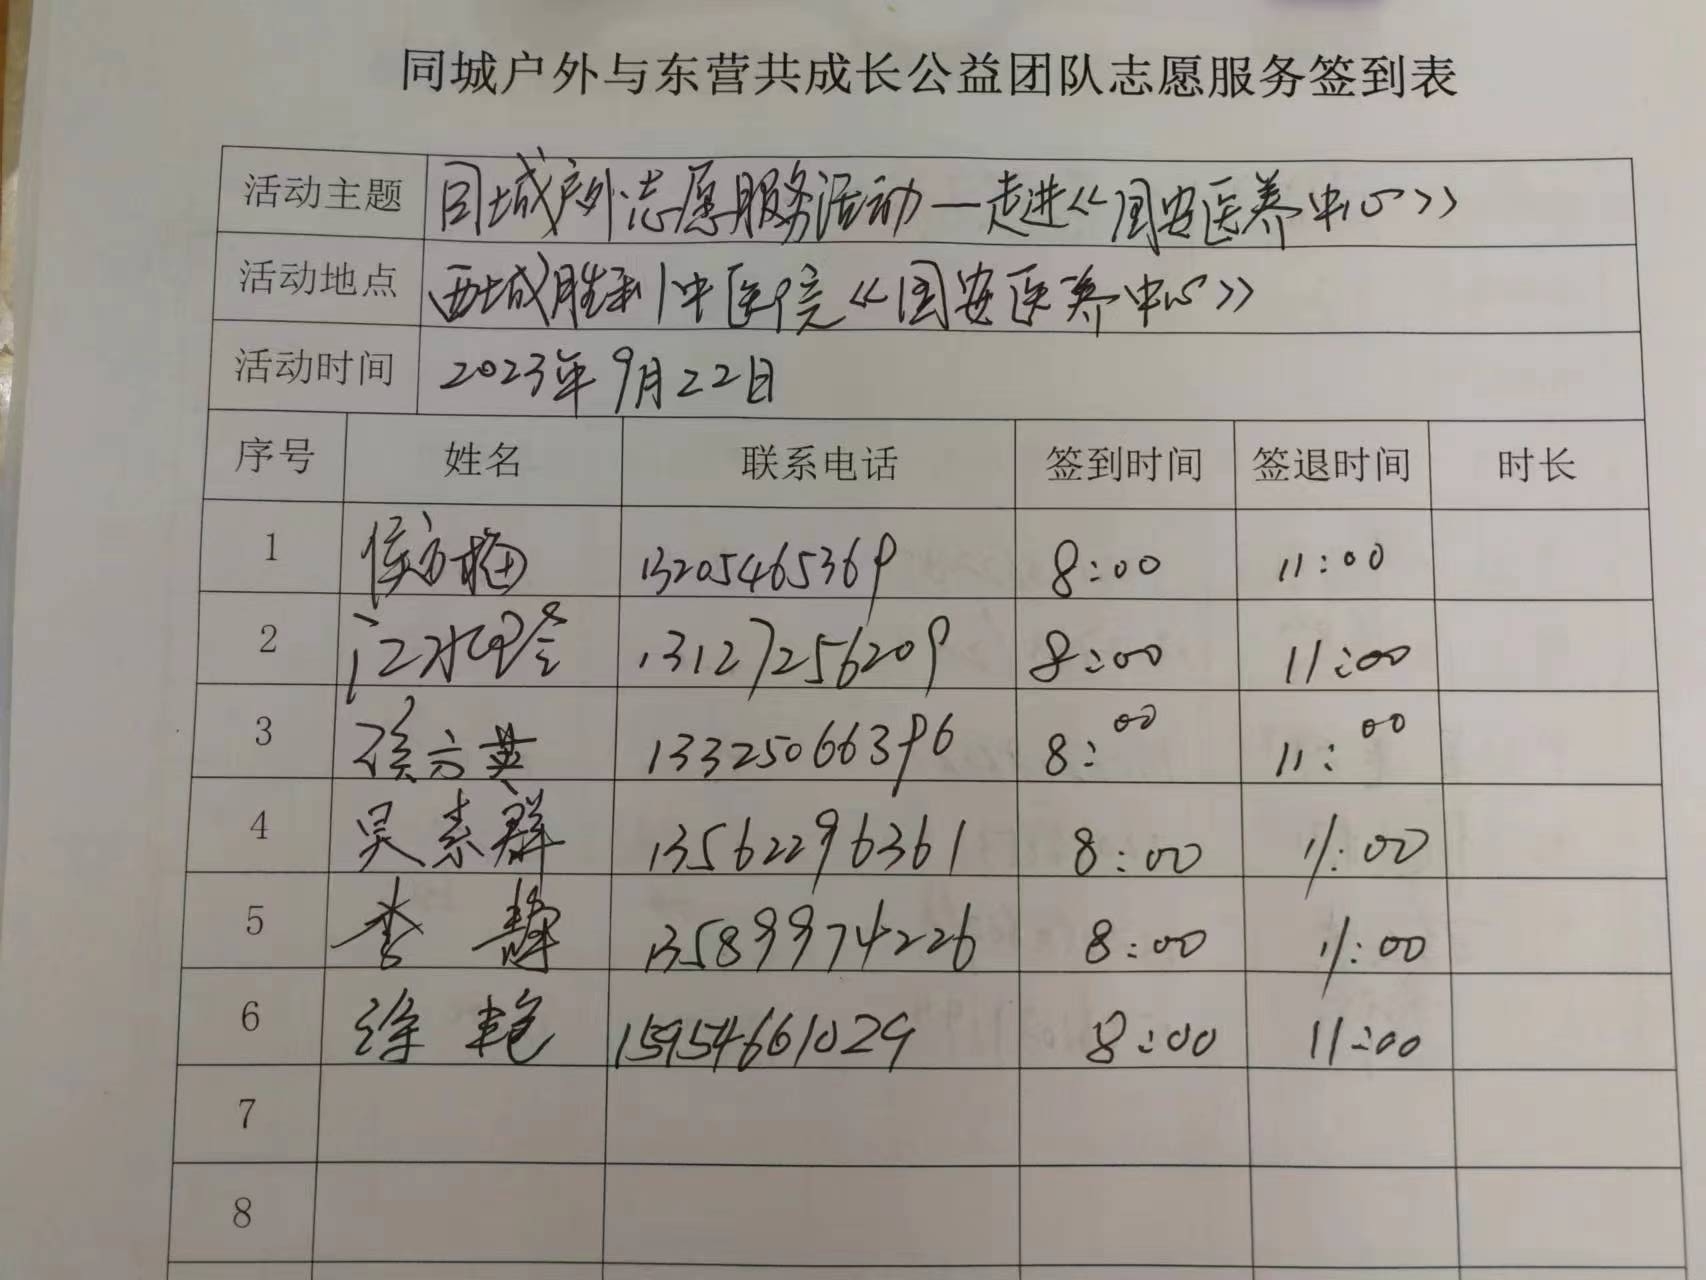 同城户外与东营共成长公益团队志愿服务签到表
活动主题 同城户外志愿服务活动—走进《国安医养中心》
活动地点 西城胜利中医院《国安医养中心》
活动时间 2023年9月22日
序号 姓名 联系电话 签到时间 签退时间 时长
1 侯方梅 13205465369 8:00 11:00
2 13127256209 8:00 11:00
3 侯六英 13325066396 8:00 11:00
4 吴素群 13562296361 8:00 11:00
5 李静 13589974226 8:00 11:00
6 徐艳 15954661029 8:00 11:00
7
8